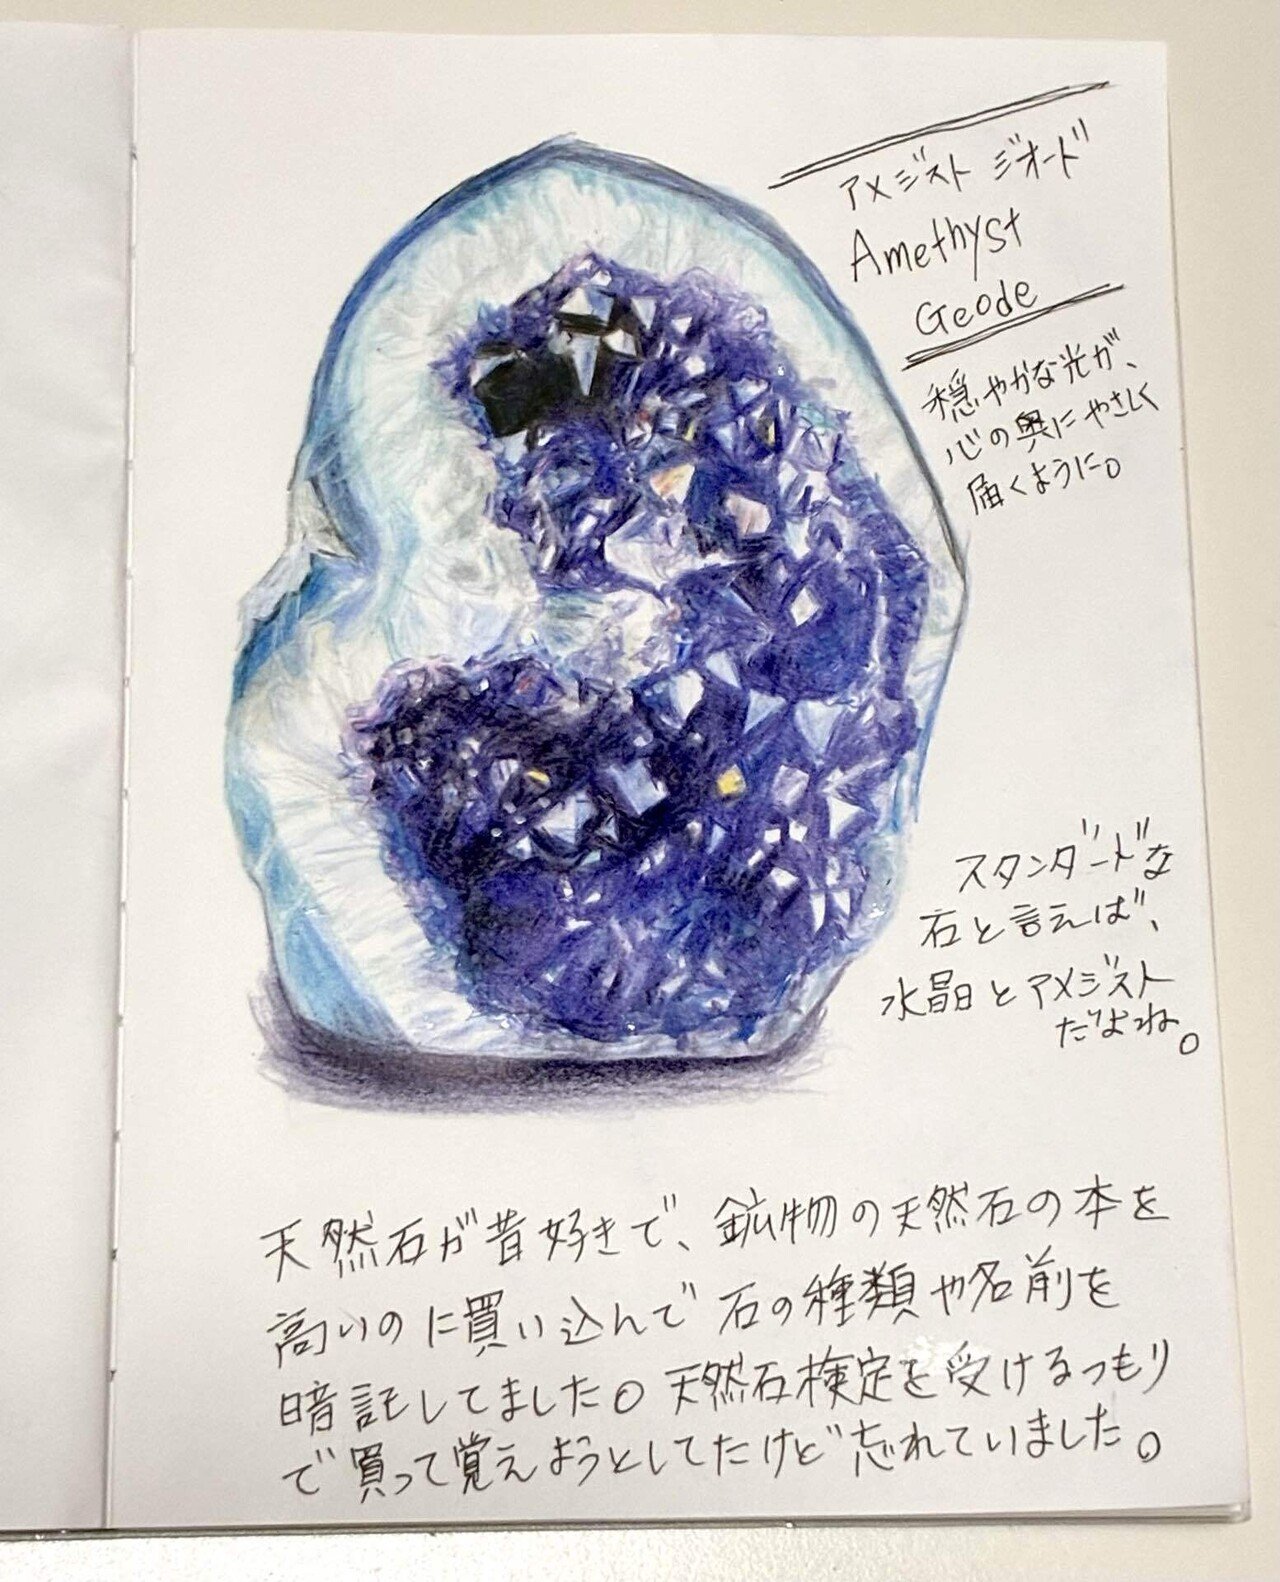 アメジスト ジオード
Amethyst
Geode
穏やかな光が、
心の奥にやさしく
届くように。
スタンダードな
石と言えば、
水晶とアメジスト
だよね。
天然石が昔好きで、鉱物の天然石の本を
高いのに買い込んで石の種類や名前を
暗記してました。天然石検定を受けるつもり
で買って覚えようとしてたけど忘れていました。